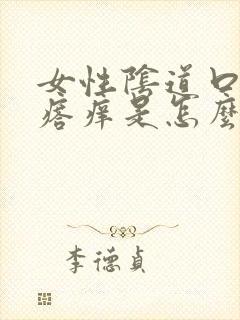 女性陰道口
瘩痒是怎麼
李德貞